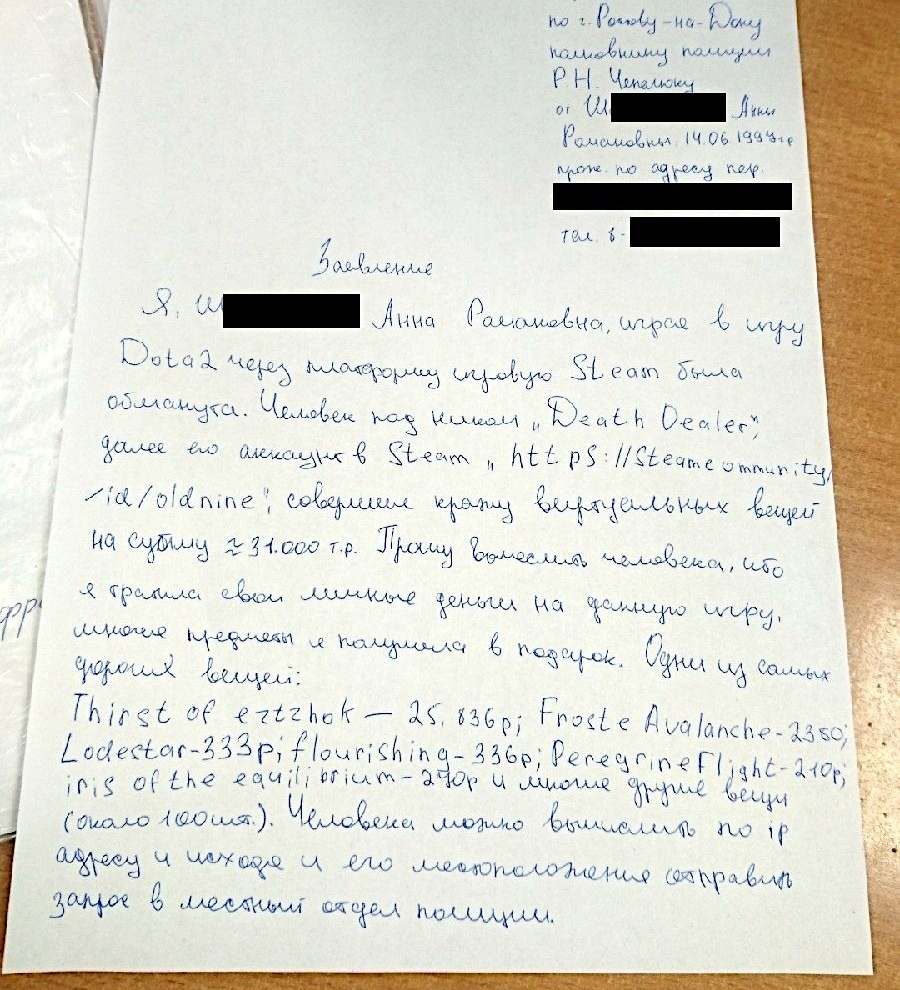 по г. Ростову-на-Дону
полковнику полиции
Р.Н. Чепелюку
от Ш Анны
Романовны, 14.06.1999г.р
прож. по адресу пер.
тел. 8-
Заявление
Я, Ш Анна Романовна, играя в игру
Dota2 через платформу игровую Steam была
обманута. Человек под ником „Death Dealer",
далее его аккаунт в Steam „https://Steamcommunity/
/id/oldnine", совершил кражу виртуальных вещей
на сумму ≈31.000 т.р. Прошу вычислить человека, ибо
я тратила свои личные деньги на данную игру,
многие предметы я получила в подарок. Одни из самых
дорогих вещей:
Thirst of eztzhok — 25.836р; Froste Avalanche-2350;
Lodestar-333р; flourishing-336р; Peregrine Flight-210р;
iris of the equilibrium-290р и многие другие вещи
(около 100шт.). Человека можно вычислить по ip
адресу и исходя и его местоположения отправить
запрос в местный отдел полиции.